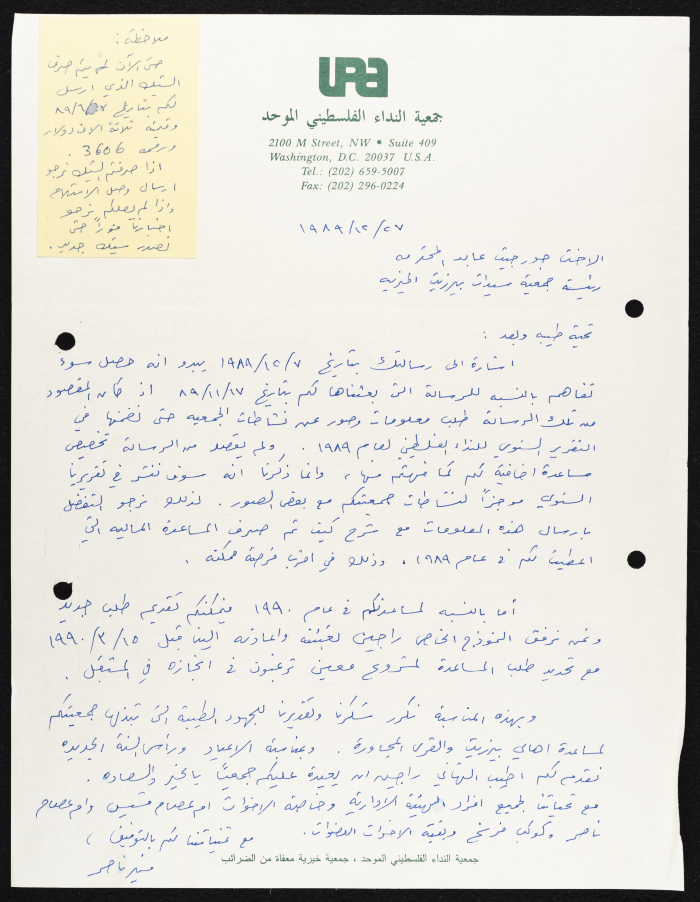 ملاحظة :
حتى الآن لم يتم صرف
الشيك الذي ارسل
لكم بتاريخ ٨٩/٦/٢٣
وقيمته ثلاثة الاف دولار
ورقمه 3606 .
اذا صرفتم الشيك نرجو
ارسال وصل الاستلام
واذا لم يصلكم نرجو
اخبارنا فوراً حتى
نصدر شيك جديد .
UPA
جمعية النداء الفلسطيني الموحد
2100 M Street, NW • Suite 409
Washington, D.C. 20037 U.S.A.
Tel.: (202) 659-5007
Fax: (202) 296-0224
١٩٨٩/١٢/٢٧
الاخت جورجيت عابد المحترمه
رئيسة جمعية سيدات بيرزيت الخيريه
تحية طيبه وبعد :
اشارة الى رسالتك بتاريخ ١٩٨٩/١٢/٧ يبدو انه حصل سوء
تفاهم بالنسبه للرسالة التي بعثناها لكم بتاريخ ٨٩/١١/١٧ اذ كان المقصود
من تلك الرسالة طلب معلومات وصور عن نشاطات الجمعيه حتى نضمنها في
التقرير السنوي للنداء الفلسطيني لعام ١٩٨٩ . ولم يقصد من الرسالة تخصيص
مساعدة اضافية لكم كما فهمتم منها، وانما ذكرنا انه سوف ننشر في تقريرنا
السنوي موجزاً لنشاطات جمعيتكم مع بعض الصور . لذلك نرجو التفضل
بارسال هذه المعلومات مع شرح كيف تم صرف المساعدة الماليه التي
اعطيت لكم في عام ١٩٨٩ ، وذلك في اقرب فرصة ممكنه .
أما بالنسبه لمساعدتكم في عام ١٩٩٠ فيمكنكم تقديم طلب جديد
ونحن نرفق النموذج الخاص راجين تعبئته واعادته الينا قبل ١٩٩٠/٣/١٥
مع تحديد طلب المساعدة لمشروع معين ترغبون في انجازه في المستقبل .
وبهذه المناسبة نكرر شكرنا وتقديرنا للجهود الطيبة التي تبذلها جمعيتكم
لمساعدة اهالي بيرزيت والقرى المجاورة . وبمناسبة الاعياد ورأس السنة الجديده
نقدم لكم اطيب التهاني راجين ان يعيده عليكم جميعاً بالخير والسعاده .
مع تحياتنا لجميع افراد الهيئة الادارية وخاصة الاخوات ام عصام قسيس وام عصام
ناصر وكوكب فرنج وبقية الاخوات العضوات . مع تمنياتنا لكم بالتوفيق ،
منير ناصر
جمعية النداء الفلسطيني الموحد ، جمعية خيرية معفاة من الضرائب